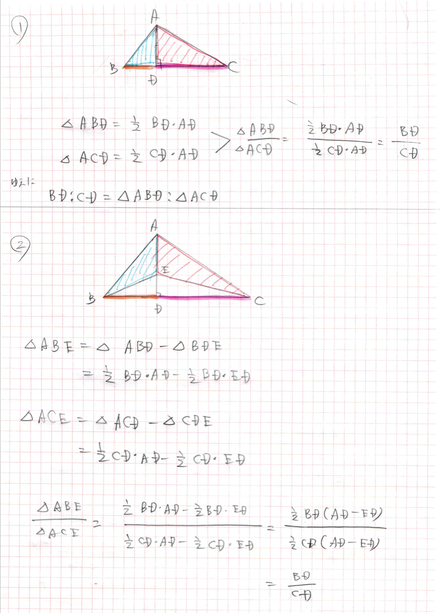 ①
A
B
D
C
△ABD = 1/2 BD・AD
△ACD = 1/2 CD・AD
△ABD/△ACD = (1/2 BD・AD)/(1/2 CD・AD) = BD/CD
ゆえに
BD:CD = △ABD:△ACD
②
A
E
B
D
C
△ABE = △ABD - △BDE
= 1/2 BD・AD - 1/2 BD・ED
△ACE = △ACD - △CDE
= 1/2 CD・AD - 1/2 CD・ED
△ABE/△ACE = (1/2 BD・AD - 1/2 BD・ED)/(1/2 CD・AD - 1/2 CD・ED) = (1/2 BD(AD-ED))/(1/2 CD(AD-ED))
= BD/CD